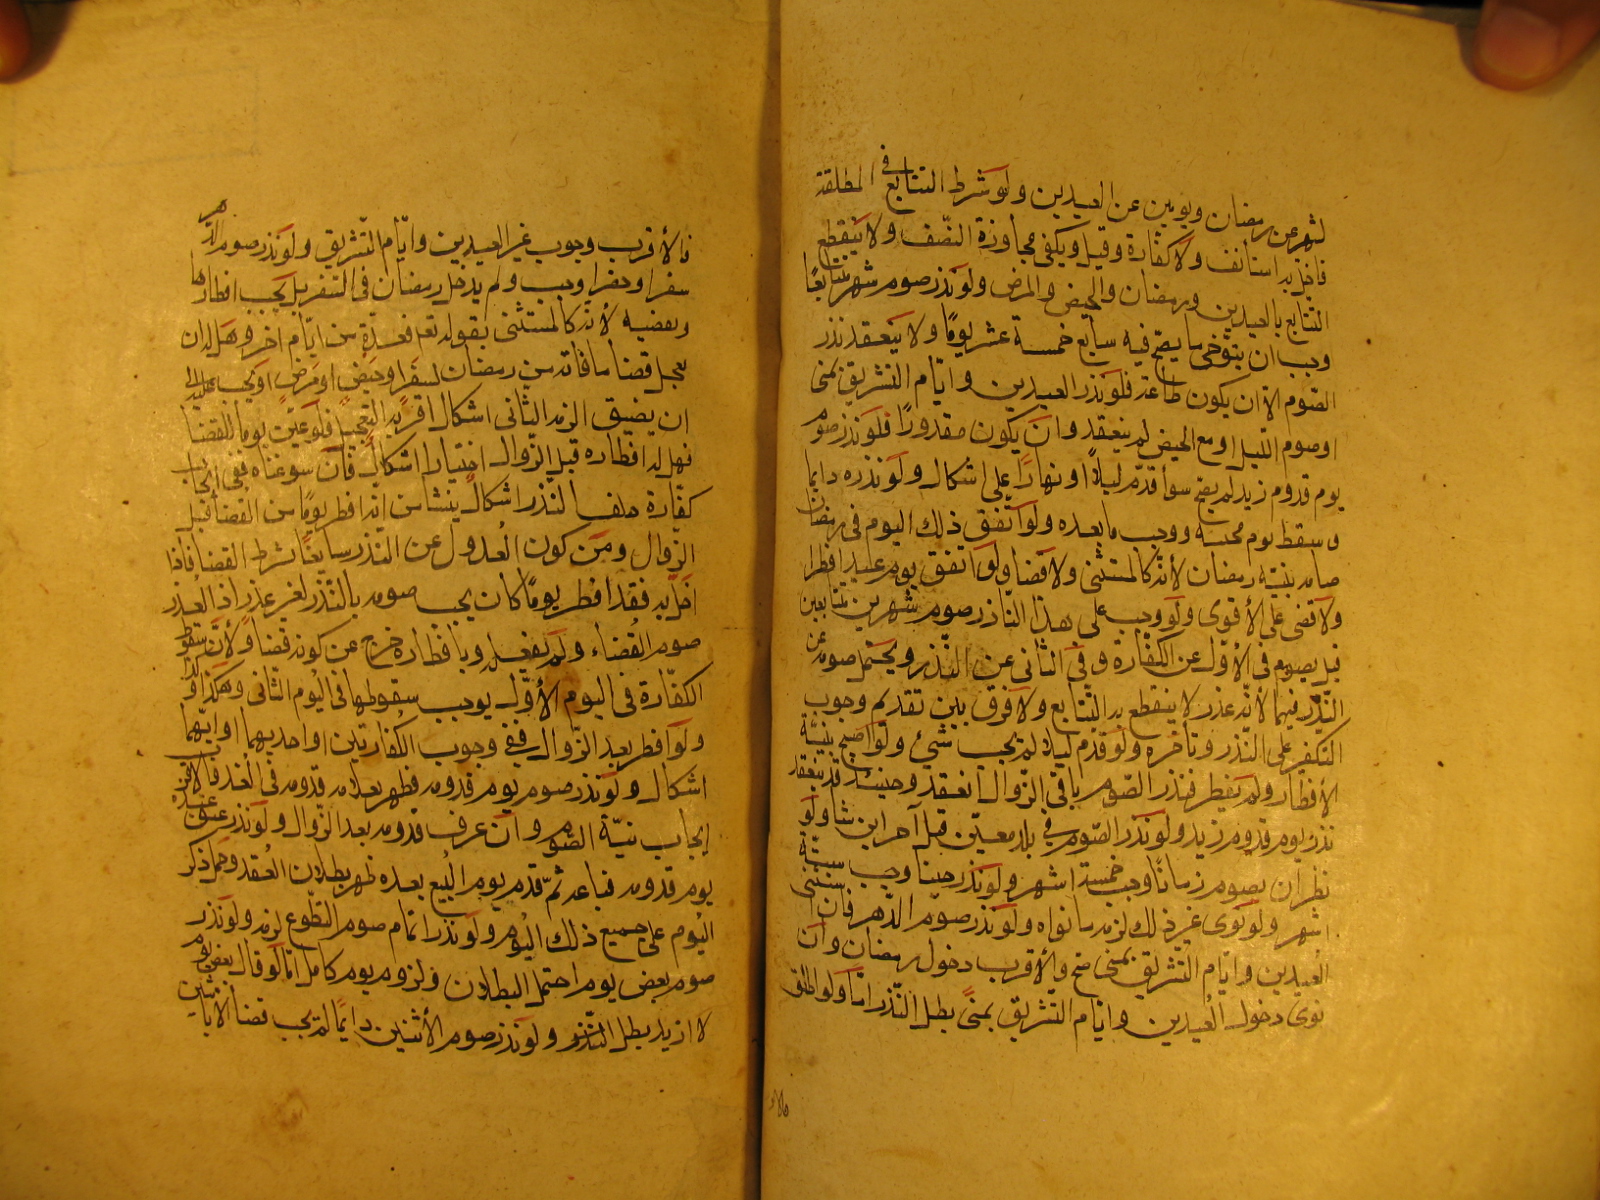 لشهر عن رمضان ويومين عن العيدين ولو شرط التتابع في المطلقة
فاخل به استأنف ولا كفارة وقيل ويكفى مجاوزة النصف ولا ينقطع
التتابع بالعيدين ورمضان والحيض والمرض ولو نذر صوم شهر متتابعًا
وجب ان يتوخى ما يصح فيه تتابع خمسة عشر يومًا ولا ينعقد نذر
الصوم الا ان يكون طاعة فلو نذر العيدين وايام التشريق بمنى
او صوم الليل او مع الحيض لم ينعقد وان يكون مقدورًا فلو نذر صوم
يوم قدوم زيد لم يصح سوأ قدم ليلًا او نهارًا على اشكال ولو نذره دايما
وسقط يوم مجيئه ووجب ما بعده ولو اتفق ذلك اليوم في رمضان
صامه بنية رمضان لأنه كالمستثنى ولا قضا ولو اتفق يوم عيد افطرا
ولا قضى على الأقوى ولو وجب على هذا الناذر صوم شهرين متتابعين
قيل يصوم في الأول عن الكفارة وفي الثاني عن النذر ويحتمل صومه عن
النذر فيهما لأنه عذر لا ينقطع به التتابع ولا فرق بين تقدم وجوب
التكفير على النذر وتأخره ولو قدم ليلا لم يجب شئ ولو اصبح بنية
الأفطار ولم يفطر فنذر الصوم باقي الزوال انعقد وحينئذ قد ينعقد
نذر يوم قدوم زيد ولو نذر الصوم في بلد معين قيل آخر اين شا ولو
نذر ان يصوم زمانًا وجب خمسة اشهر ولو نذر حينا وجب ستة
اشهر ولو نوى غير ذلك لزمه ما نواه ولو نذر صوم الدهر فان استثنى
العيدين وايام التشريق بمنى صح والأقرب دخول رمضان وان
نوى دخول العيدين وايام التشريق بمنًى بطل النذر امّا ولو اطلق
فالأ
فالأقرب وجوب غير العيدين وأيام التشريق ولو نذر صوم الدهر
سفرا وحضرا وجب ولم يدخل رمضان في السفر بل يجب افطارها
ويقضيه لأنه كالمستثنى بقوله تعم فعدة من ايام اخر وهل له ان
يعجل قضا ما فاته من رمضان لسفر او حيضٍ او مرضٍ او يجب عليه الى
ان يضيق الرمد الثانى اشكال اقربه التعجيل فلو عين يوما للقضا
فهل له افطاره قبل الزوال اختيارا اشكال فان سوغناه ففي ايجاب
كفارة خلف النذر اشكال ينشا من انه افطر يومًا من القضا قبل
الزوال ومن كون العدول عن النذر سايغًا بشرط القضا فاذا
اخل به فقد افطر يومًا كان يجب صومه بالنذر لغير عذر اذ العذر
صوم القضاء ولم يفعله وبافطاره خرج عن كونه قضا ولأن سقوط
الكفارة في اليوم الأول يوجب سقوطها في اليوم الثانى وهكذا
ولو افطر بعد الزوال ففي وجوب الكفارتين او احديهما او ايهما
اشكال ولو نذر صوم يوم قدومه فظهر بعلامة قدومه في الغد فالأقرب
إيجاب نية الصوم وان عرف قدومه بعد الزوال ولو نذر عتق عبده
يوم قدومه فباعه ثم قدم يوم البيع بعده ظهر بطلان العقد وحمل ذكر
اليوم على جميع ذلك اليوم ولو نذر اتمام صوم التطوع لزمه ولو نذر
صوم بعض يوم احتمل البطلان ولزوم يوم كامل امّا لو قال بعض يوم
لا ازيد بطل النذر ولو نذر صوم الأثنين دايمًا لم يجب قضا الاثانين